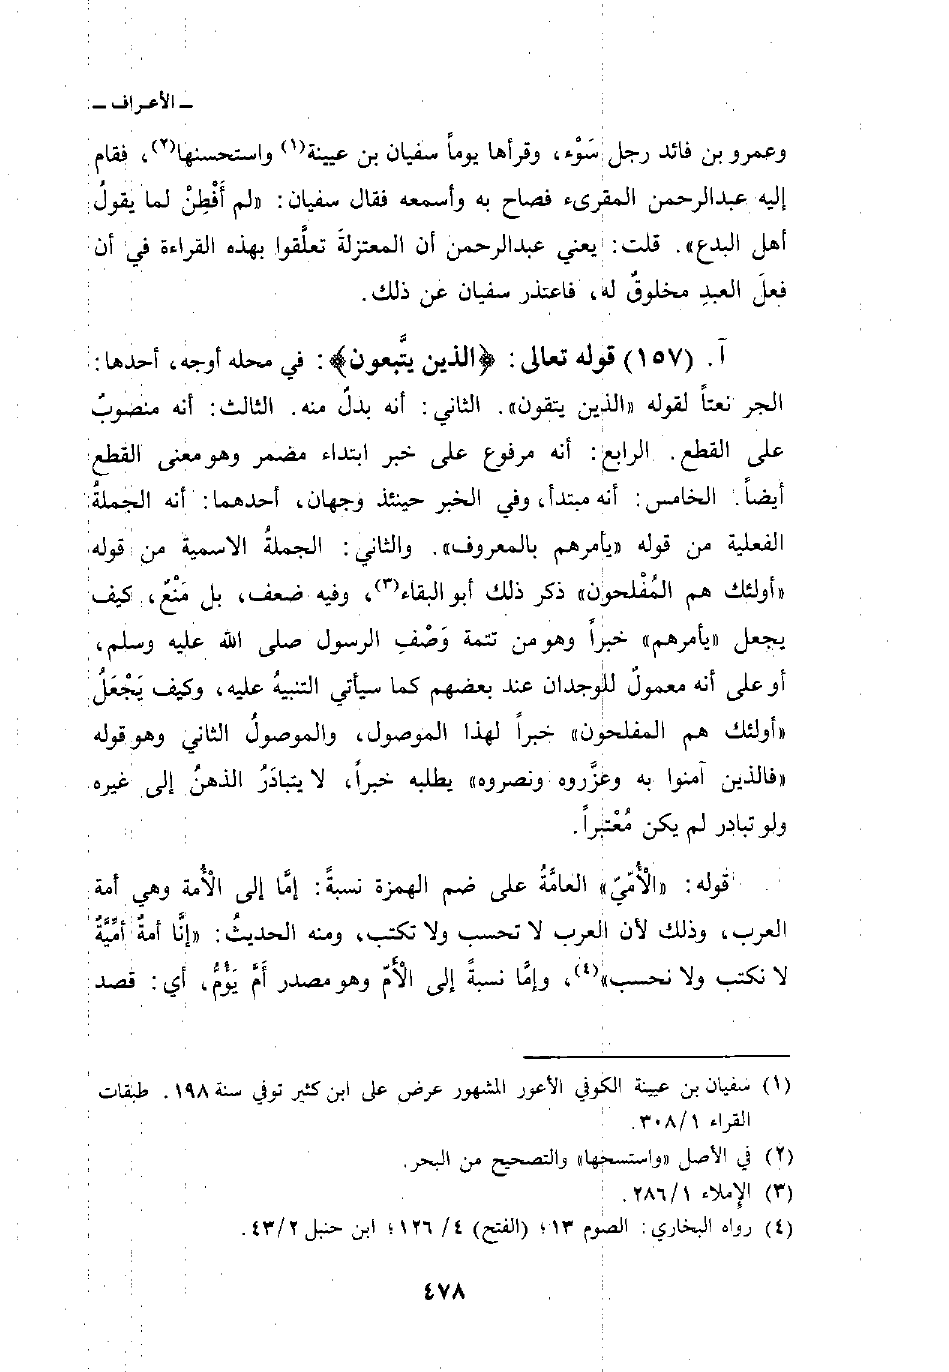 ـ الأعراف ـ
وعمرو بن فائد رجل سَوْء، وقرأها يوماً سفيان بن عيينة(١) واستحسنها(٢)، فقام
إليه عبدالرحمن المقرىء فصاح به وأسمعه فقال سفيان: «لم أَفْطِنْ لما يقولُ
أهل البدع». قلت: يعني عبدالرحمن أن المعتزلةَ تعلَّقوا بهذه القراءة في أن
فعلَ العبدِ مخلوقٌ له، فاعتذر سفيان عن ذلك.
آ. (١٥٧) قوله تعالى: ﴿الذين يتَّبعون﴾: في محله أوجه، أحدها:
الجر نعتاً لقوله «الذين يتقون». الثاني: أنه بدلٌ منه. الثالث: أنه منصوبٌ
على القطع. الرابع: أنه مرفوع على خبر ابتداء مضمر وهو معنى القطع
أيضاً. الخامس: أنه مبتدأ، وفي الخبر حينئذ وجهان، أحدهما: أنه الجملةُ
الفعلية من قوله «يأمرهم بالمعروف». والثاني: الجملةُ الاسمية من قوله
«أولئك هم المُفْلحون» ذكر ذلك أبو البقاء(٣)، وفيه ضعف، بل مَنْعٌ، كيف
يجعل «يأمرهم» خبراً وهو من تتمة وَصْفِ الرسول صلى الله عليه وسلم،
أو على أنه معمولٌ للوجدان عند بعضهم كما سيأتي التنبيهُ عليه، وكيف يَجْعَلُ
«أولئك هم المفلحون» خبراً لهذا الموصول، والموصولُ الثاني وهو قوله
«فالذين آمنوا به وعزَّروه ونصروه» يطلبه خبراً، لا يتبادَرُ الذهنُ إلى غيره
ولو تبادر لم يكن مُعْتبراً.
قوله: «الأُمّيّ» العامَّةُ على ضم الهمزة نسبةً: إمَّا إلى الأُمة وهي أمة
العرب، وذلك لأن العرب لا تحسب ولا تكتب، ومنه الحديثُ: «إنَّا أمةٌ أمِّيَّةٌ
لا نكتب ولا نحسب»(٤)، وإمَّا نسبةً إلى الأَمّ وهو مصدر أَمَّ يَؤُمُّ، أي: قصد
(١) سفيان بن عيينة الكوفي الأعور المشهور عرض على ابن كثير توفي سنة ١٩٨. طبقات
القراء ٣٠٨/١.
(٢) في الأصل «واستسحها» والتصحيح من البحر.
(٣) الإملاء ٢٨٦/١.
(٤) رواه البخاري: الصوم ١٣؛ (الفتح) ٤/ ١٢٦؛ ابن حنبل ٤٣/٢.
٤٧٨